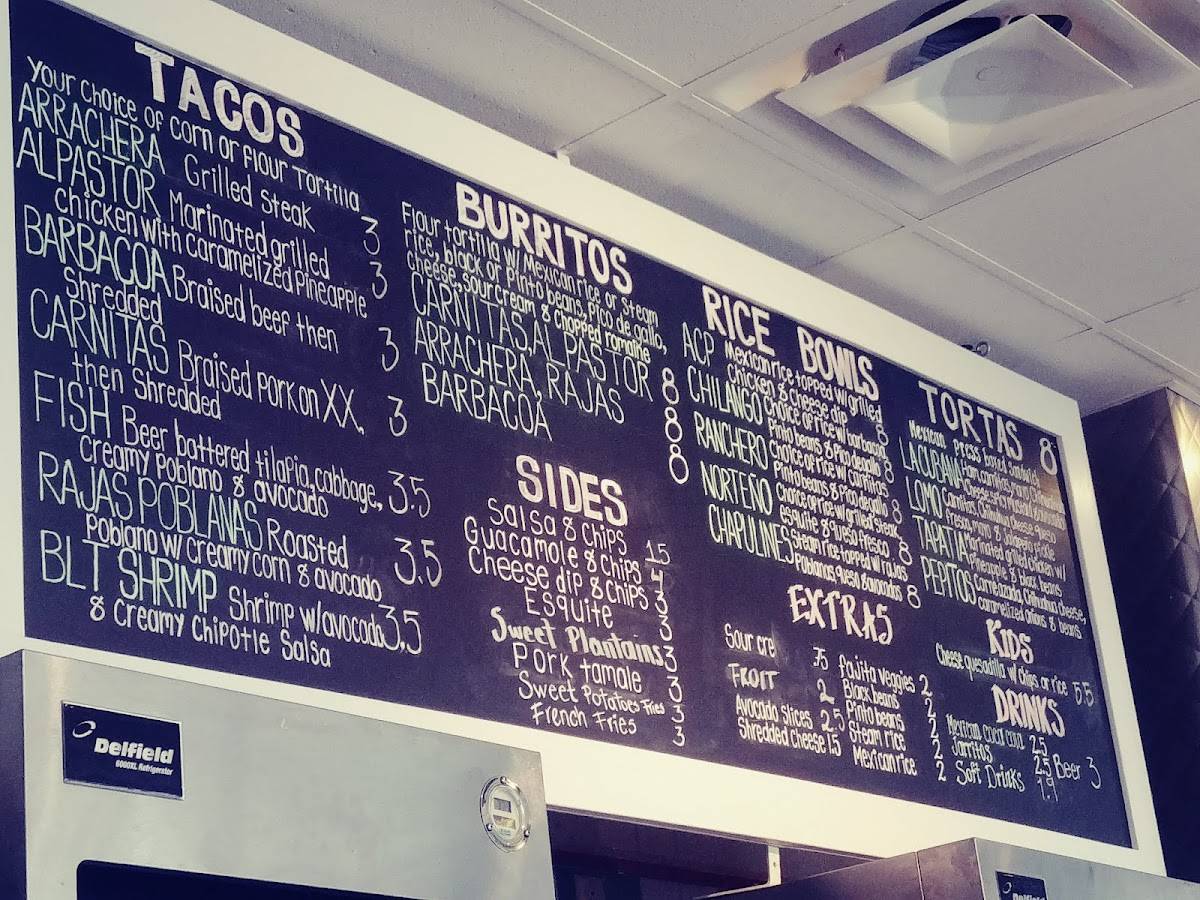 TACOS
Your choice of corn or flour Tortilla
ARRACHERA Grilled Steak 3
ALPASTOR Marinated grilled
chicken with caramelized Pineapple 3
BARBACOA Braised beef then
Shredded 3
CARNITAS Braised pork on XX,
then Shredded 3
FISH Beer battered tilapia, cabbage,
creamy poblano & avocado 3.5
RAJAS POBLANAS Roasted
Poblano w/ creamy corn & avocado 3.5
BLT SHRIMP Shrimp w/avocado 3.5
& creamy Chipotle Salsa
BURRITOS
Flour tortilla w/ Mexican rice or Steam
rice, black or Pinto beans, Pico de gallo,
cheese, sour cream & chopped romaine
CARNITAS, AL PASTOR 8
ARRACHERA, RAJAS 8
BARBACOA 8
8
SIDES
Salsa & Chips 1.5
Guacamole & Chips 4
Cheese dip & Chips 3
Esquite 3
Sweet Plantains 3
Pork tamale 3
Sweet Potatoes Fries 3
French Fries 3
RICE BOWLS
ACP Mexican rice topped w/ grilled
Chicken & cheese dip 8
CHILANGO Choice of rice w/ barbacoa
Pinto beans & Pico de gallo 8
RANCHERO Choice of rice w/ carnitas
Pinto beans & Pico de gallo 8
NORTEÑO Choice of rice w/ grilled steak,
esquite & queso fresco 8
CHAPULINES Steam rice topped w/ rajas
Poblanas, queso & avocados 8
EXTRAS
Sour cre .75
FRUIT 2
Avocado slices 2.5
Shredded cheese 1.5
fajita veggies 2
Black beans 2
Pinto beans 2
Steam rice 2
Mexican rice 2
TORTAS 8
Mexican press
LA CUBANA Ham, carnitas,
Cheese, mustard &
LOMO Carnitas, Chihuahua Cheese, queso
fresco, mayo & jalapeño pickle
TAPATIA Marinated grilled chicken w/
Pineapple & black beans
PEPITOS Chihuahua cheese,
caramelized onions & beans
KIDS
Cheese quesadilla w/ chips or rice 5.5
DRINKS
Mexican coca cola 2.5
Jarritos 2.5
Soft Drinks 1.9
Beer 3
Delfield
6000XL Refrigerator
Delfield